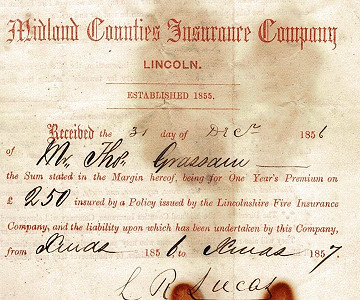 Midland Counties Insurance Company
LINCOLN.
ESTABLISHED 1855.
Received the 31 day of Decr 1856
of Mr Thos Grassam
the Sum stated in the Margin hereof, being for One Year's Premium on
£ 250 insured by a Policy issued by the Lincolnshire Fire Insurance
Company, and the liability upon which has been undertaken by this Company,
from Xmas 1856 to Xmas 1857.
L R Lucas